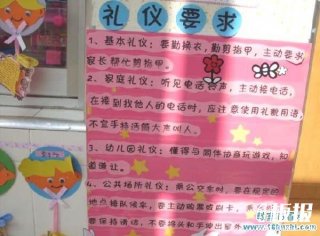 礼仪要求
1、基本礼仪：要勤换衣，勤剪指甲，主动要求
家长帮代剪指甲。
2、家庭礼仪：听见电话铃声，主动接电话，
在接到找他人的电话时，应注意使用礼貌用语，
不宜手持话筒大声叫人。
3、幼儿园礼仪：懂得与同伴协商玩游戏，知
道谦让。
4、公共场所礼仪：乘公交车时，要在规定的
地点排队候车，要主动购票或刷卡，乘
要保持清洁，不要将头和手伸出窗外